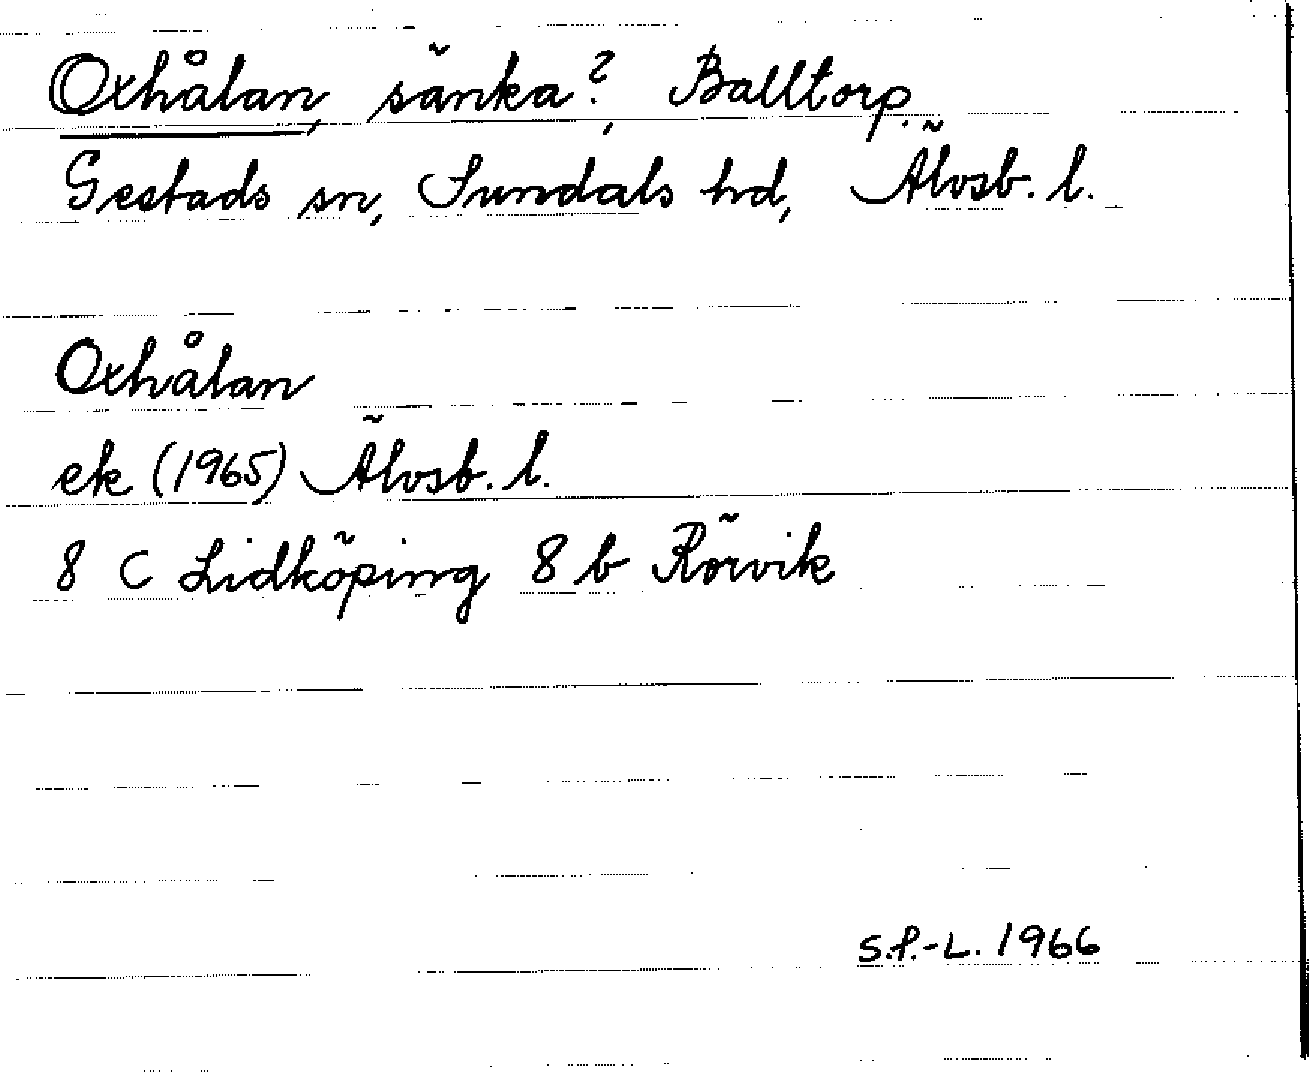 Oxhålan, sänka?, Balltorp.
Gestads sn, Sundals hd, Älvsb. l.
Oxhålan
ek (1965) Älvsb. l.
8 C Lidköping 8 b Rörvik
S.P.-L. 1966